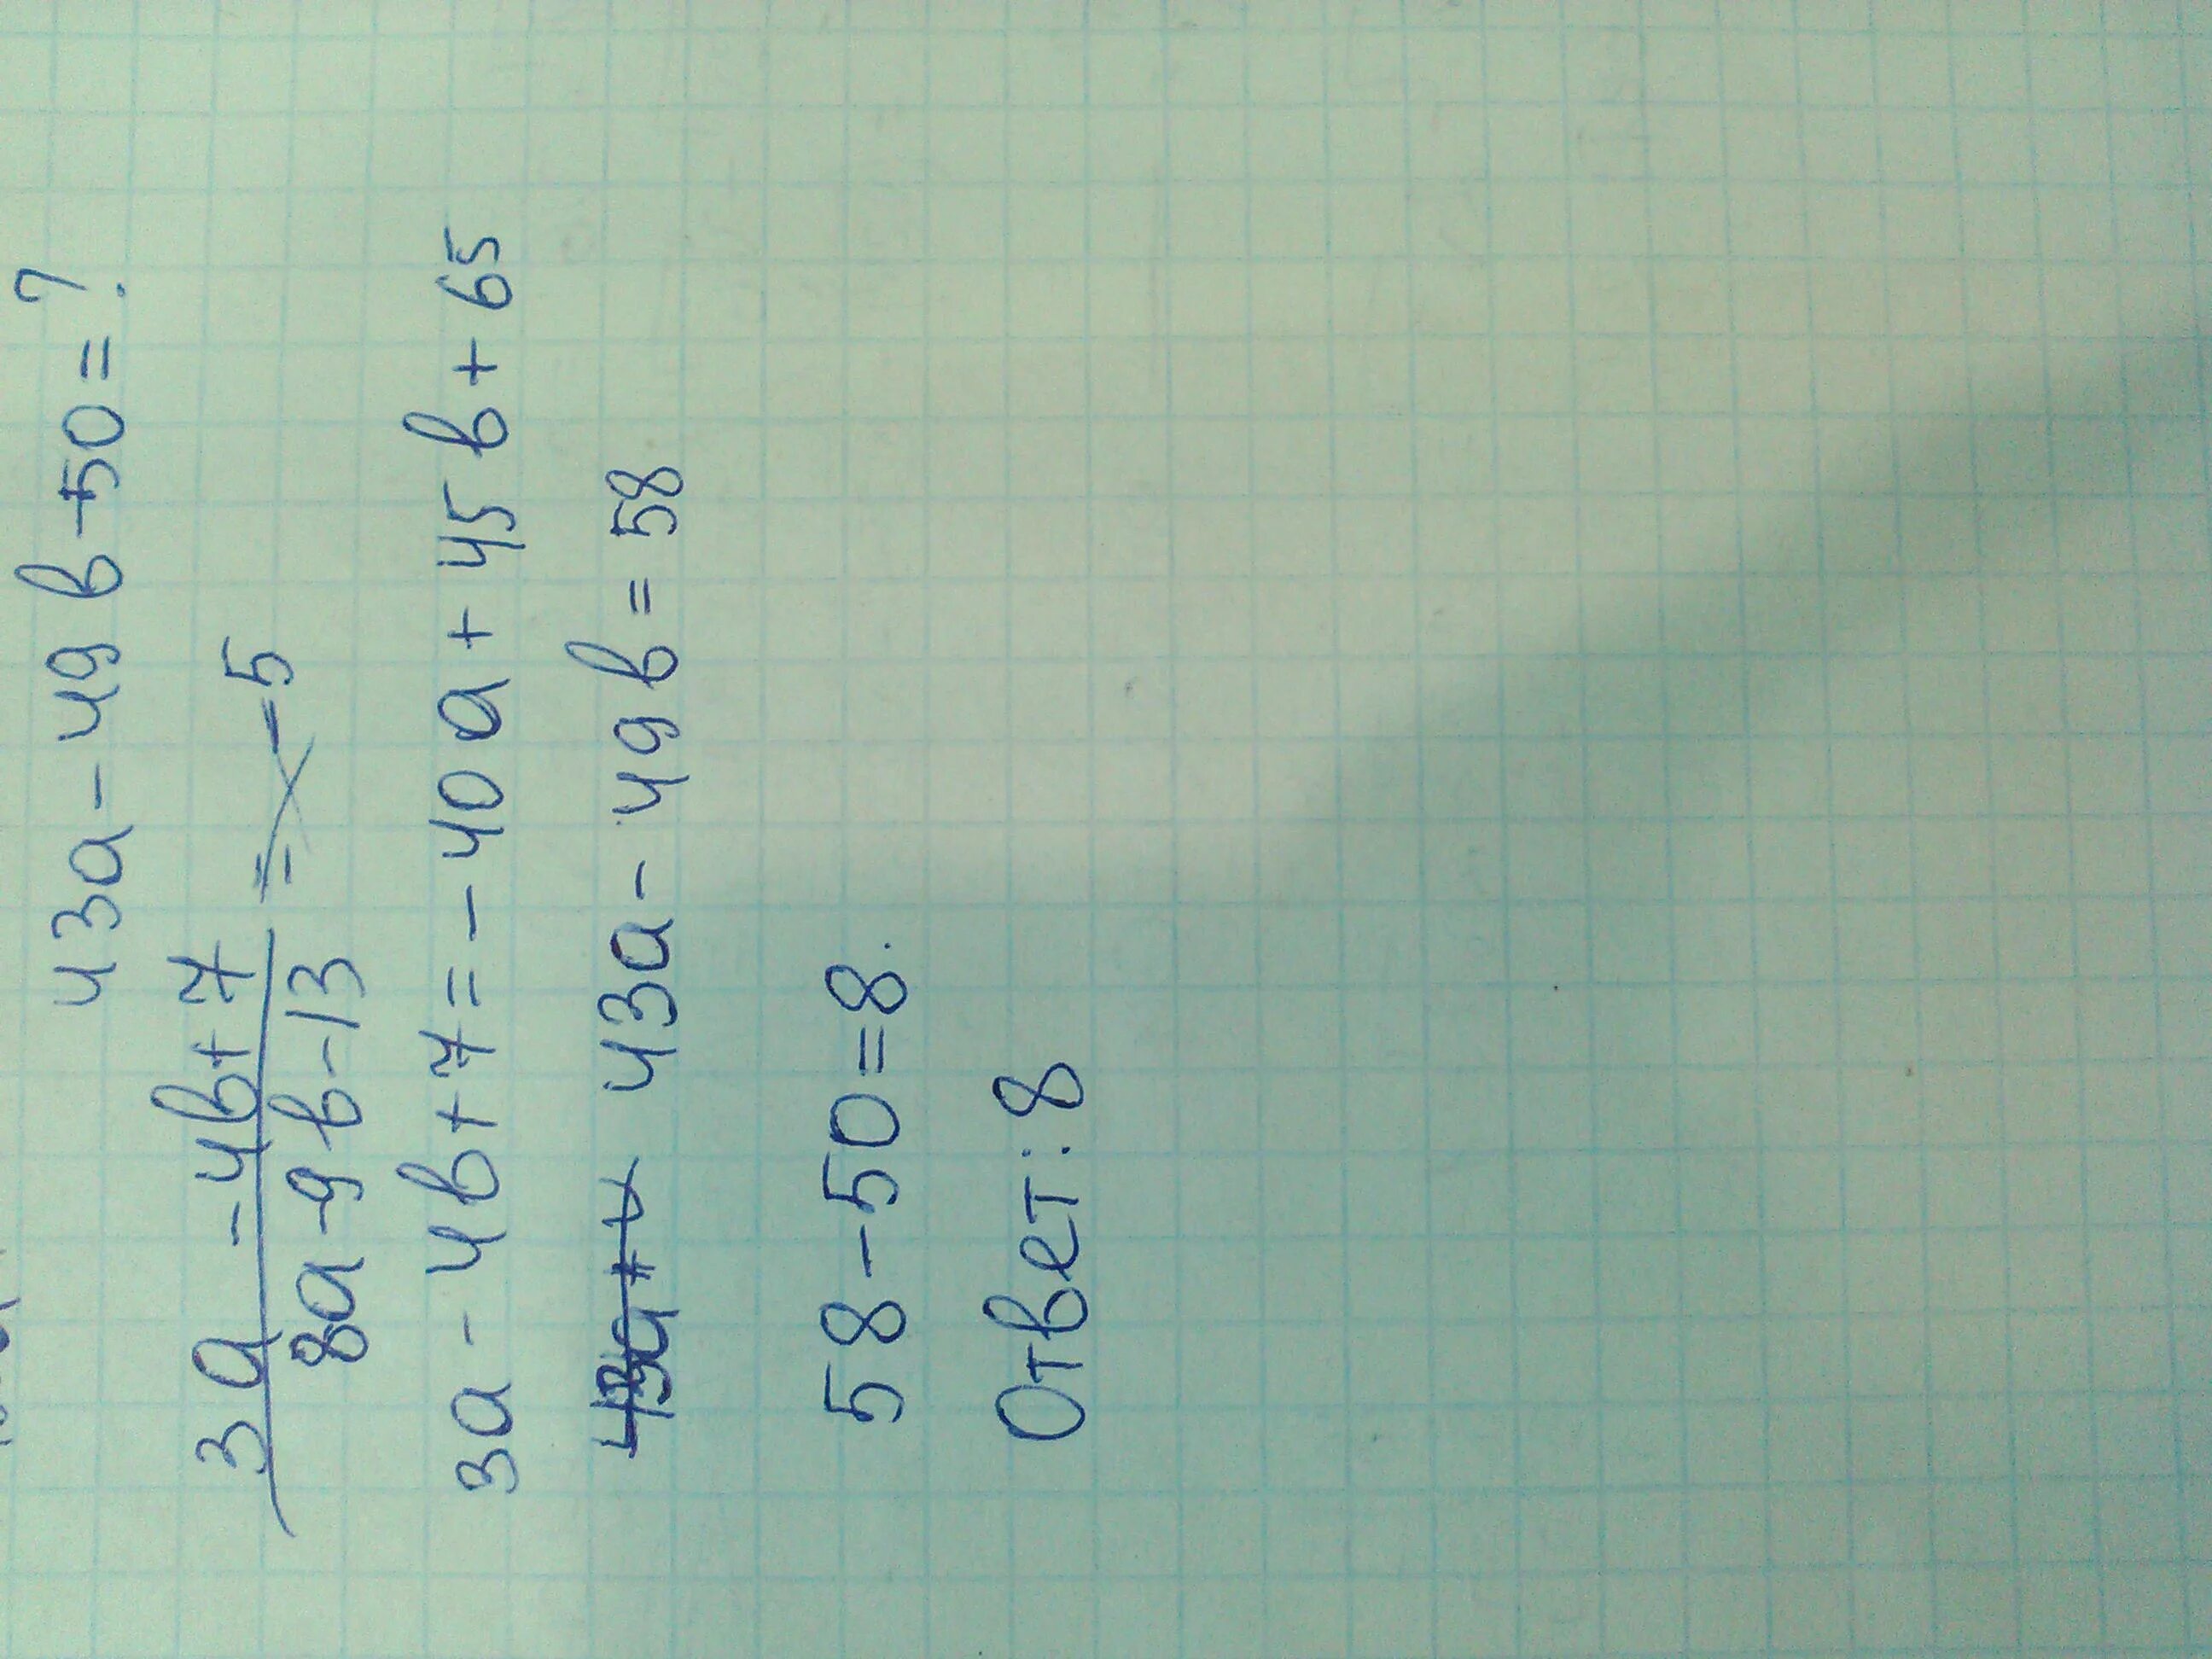 43a - 49в - 50 = ?
3a - 4в + 7
8a - 9в - 13
= -5
3a - 4в + 7 = -40a + 45в + 65
43a - 49в = 58
58 - 50 = 8.
Ответ: 8